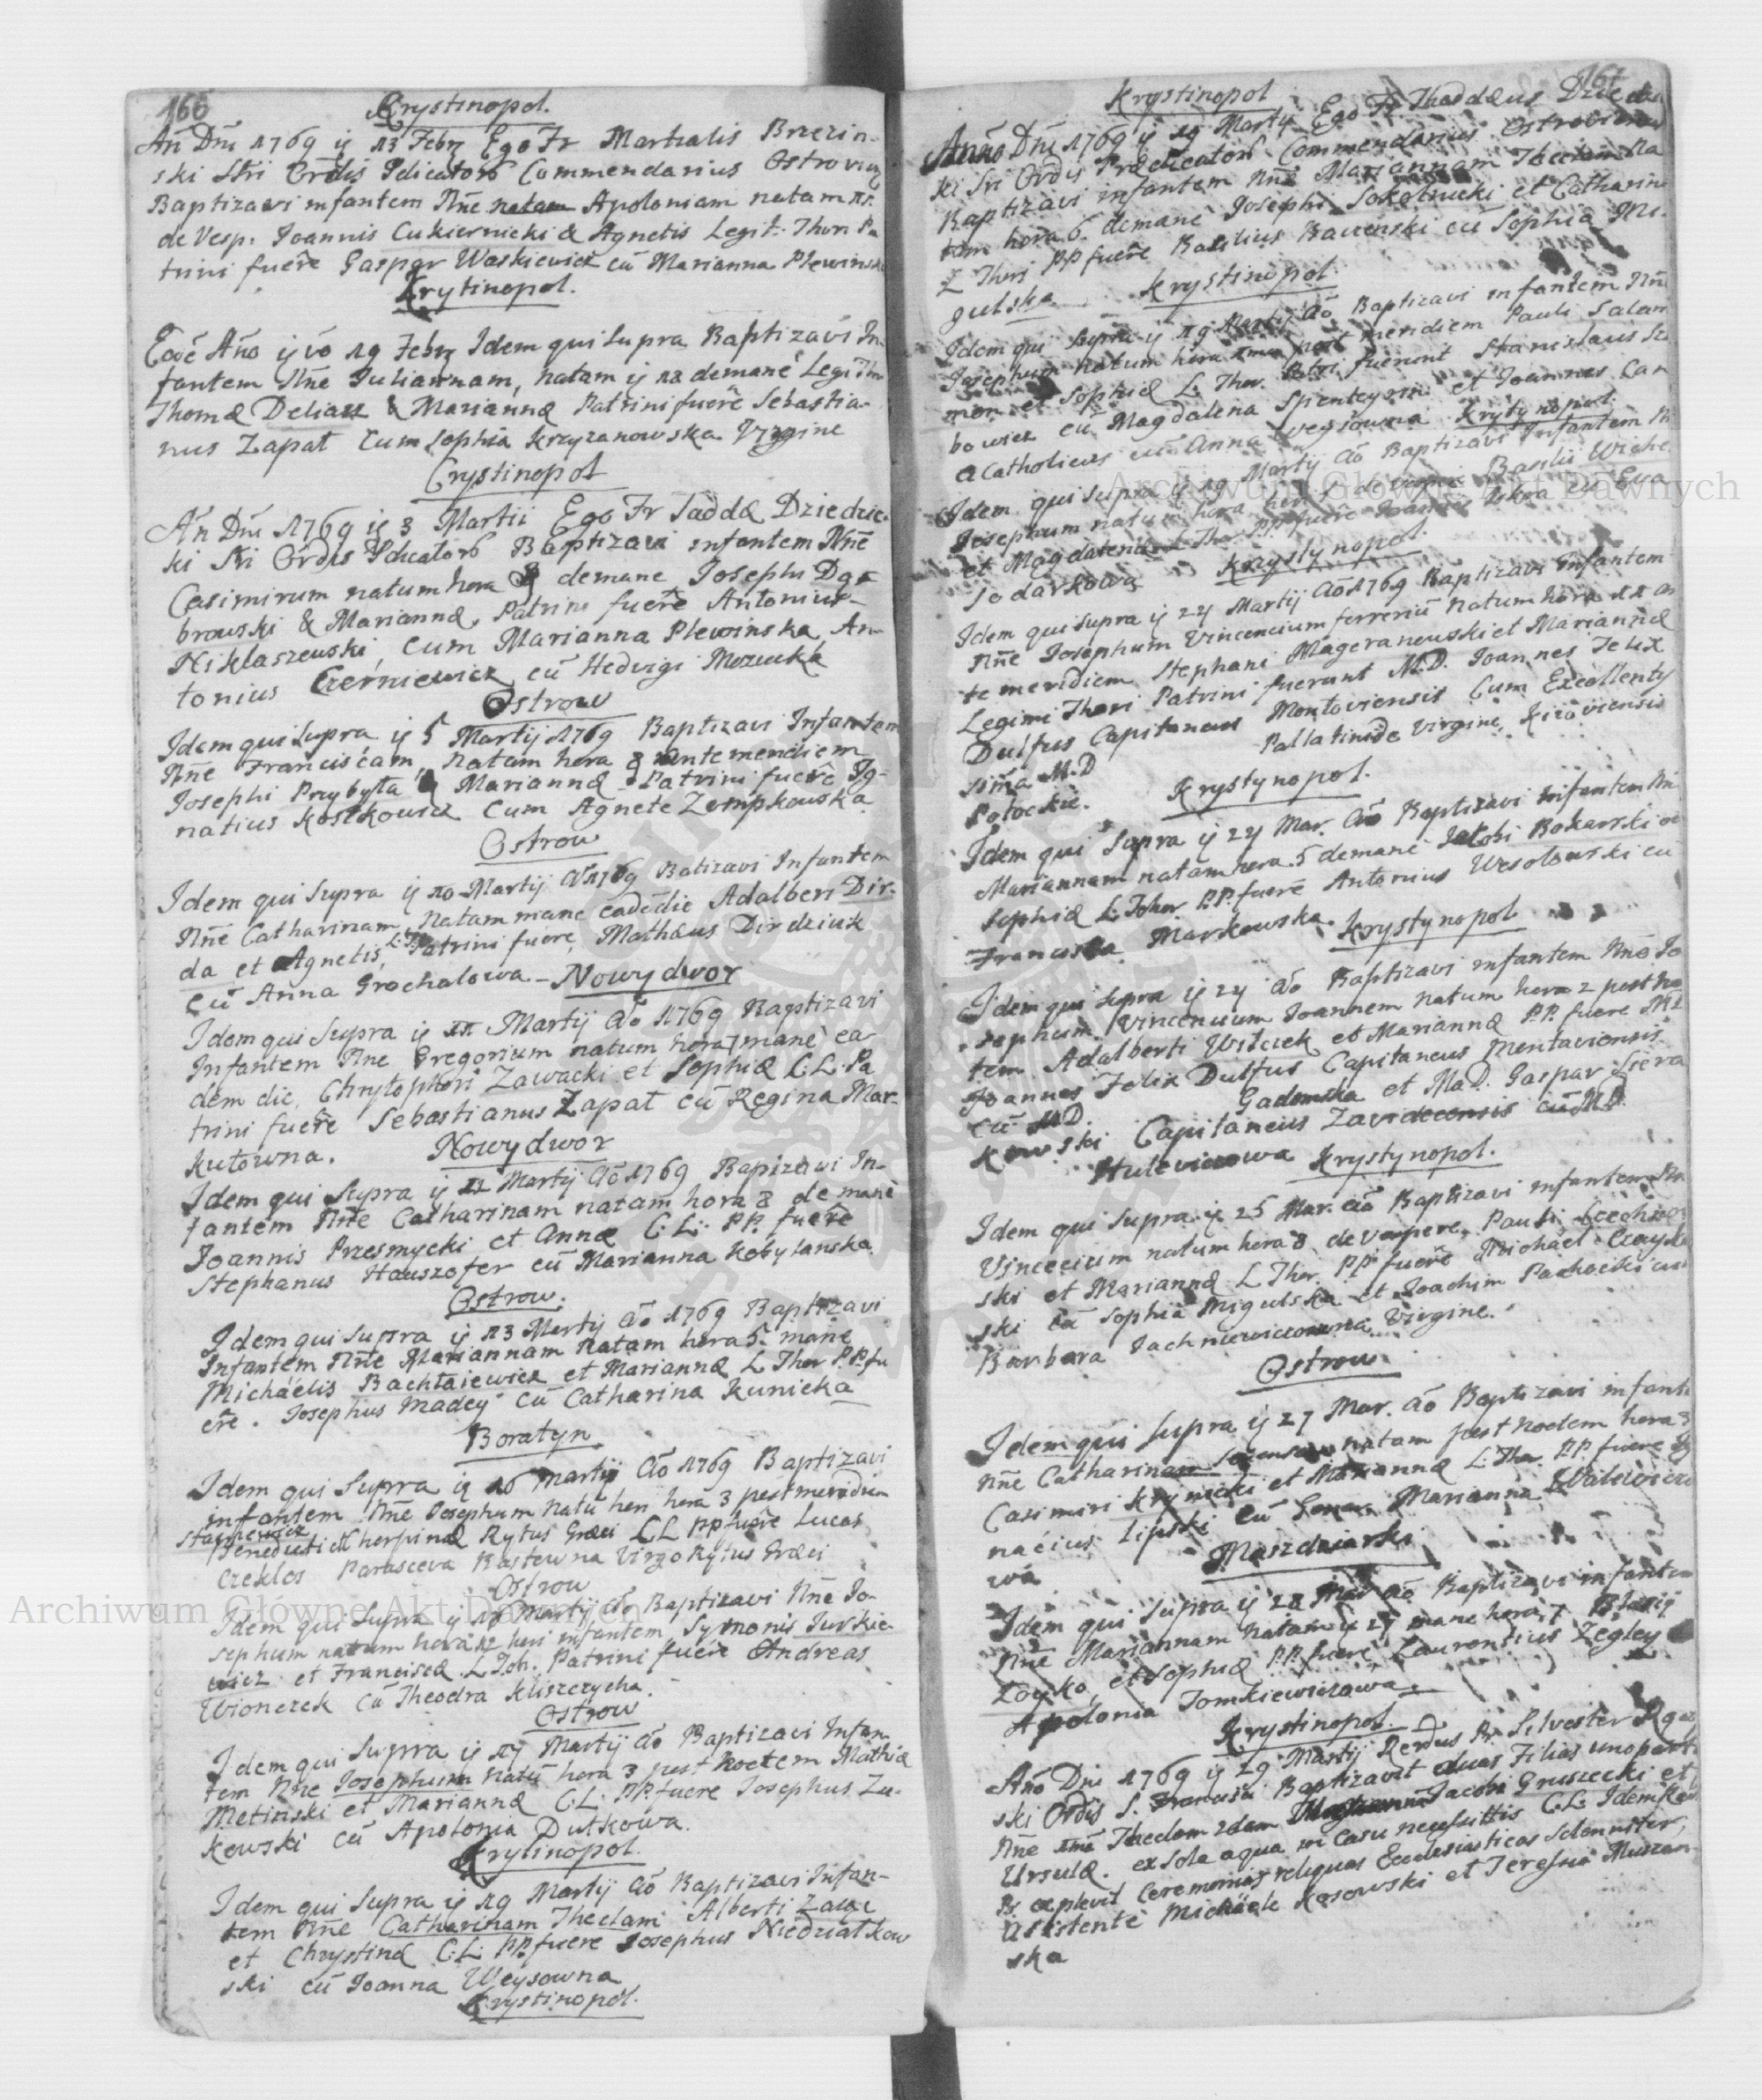 166
Krystinopol.
Añ Dni 1769 ij 13 Febrz Ego Fr Martialis Brzezin-
ski Stri Ordis Pdicator Commendarius Ostrovien
Baptizavi infantem Nñe natam Apoloniam natam
de Vesp. Joannis Cukiernicki & Agnetis Legit. Thori Pa
trini fuere Gaspar Waskiewicz cũ Marianna Plewinska
Krytinopol.
Eodē Año ij vo 19 Febrz Idem qui Supra Baptizavi In-
fantem Nñe Juliannam, natam ij 18 demane Legi Tho
Thomæ Deliasz & Mariannæ Patrini fuere Sebastia-
nus Zapat Cum Sophia Krzyzanowska Virgine
Crystinopol
Añ Dni 1769 ij 3 Martii Ego Fr Tadda Dziedzic-
ki Sti Ordis Pdicator Baptizavi infantem Nñe
Casimirum natum hora demane Josephi Dga
browski & Mariannæ, Patrini fuere Antonius
Niklaszewski, Cum Marianna Plewinska An-
tonius Czerniewicz cũ Hedvigi Mozucka
Ostrow
Idem qui Supra ij 5 Martij 1769 Baptizavi Infantem
Nñe Franciscam, natam hora 8 antemeridiem
Josephi Przybyła & Mariannæ Patrini fuere Ig-
natius Kostkowicz Cum Agnete Zempkowska
Ostrow
Idem qui Supra ij 10 Martij Aō 1769 Batizavi Infantem
Nñe Catharinam, natam mane eadēdie Adalberi Dir-
da et Agnetis, Patrini fuere, Mathæus Dirdziuk
Cũ Anna Grochalowa - Nowydwor
Idem qui Supra ij 11 Martij Aō 1769 Baptizavi
Infantem Nñe Gregorium natum hora 7 manè ea
dem die, Chrytophori Zawacki et Sophiæ C.L. Pa
trini fuere Sebastianus Zapat cũ Regina Mar-
kutowna. Nowydwor
Idem qui Supra ij 12 Martij Aō 1769 Bapizavi In-
fantem Nñe Catharinam natam hora 8 demanè
Joannis Przesmycki et Annæ C.L. PP. fuere
Stephanus Hauszofer cũ Marianna Kobylanska
Ostrow.
Idem qui Supra ij 13 Martij Aō 1769 Baptizavi
Infantem Nñe Mariannam natam hora 5 manè
Michaëlis Bachtaiewicz et Mariannæ L Thor P.P. fu
ere. Josephus Madey Cũ Catharina Kunicka
Boratyn.
Idem qui Supra ij 16 Martij Aō 1769 Baptizavi
infantem Nñe Josephum Natũ heri hora 3 postmeridiem
Benedicti et Cherpinæ Rytus Græci C.L PP fuere Lucas
Czeklos Parasceva Bastewna Virgo Rytus Græci
Ostrow
Idem qui Supra ij 18 Martij Aō Baptizavi Nñe Jo-
sephum natum hora 12 heri infantem, Symonis Jurkie-
wicz et Franciscæ L Toh. Patrini fuere Andreas
Wionczek Cũ Theodra Kliszczycha.
Ostrow
Idem qui Supra ij 19 Martij Aō Baptizavi Infan-
tem Nñe Josephum Natũ hora 3 post Noctem Mathiæ
Metinski et Mariannæ C.L. PP. fuere Josephus Zu-
kowski Cũ Apolonia Dutkowa.
Krytinopol.
Idem qui Supra ij 19 Martij Aō Baptizavi Infan-
tem Nñe Catharinam Theclam Alberti Zaige
et Chrystinæ C.L. PP. fuere Josephus Niedziałkow
ski cũ Joanna Weysowna
Krystinopol.
167
Krystinopol
Anno Dni 1769 ij 19 Martij Ego Fr Thaddæus Dziedzic
ki Sri Ordis Prædicator Commendarius Ostrovien
Baptizavi infantem Nñe Mariannam Theclam Na
tam hora 6 demane Josephi Sokolnicki et Catharinæ
L Thori PP fuere Basilius Baczenski cũ Sophia Mi-
gulska Krystinopol.
Idem qui Supra ij 19 Martij Aō Baptizavi infantem Nñe
Josephum natum hora post meridiem Pauli Salam
mon et Sophiæ L. Thor. Patri fuerunt Stanislaus
bowicz cũ Magdalena et Joannes Can
Acatholicus cũ Anna Weysowna Krytynopol.
Idem qui Supra ij 19 Martij Aō Baptizavi Infantem
Josephum natum hora Basilii Wiche
et Magdalenæ L Thor PP. fuere Joannes Iskra cũ Eva
Sodarkowa Krystynopol.
Idem qui Supra ij 24 Martij Aō 1769 Baptizavi Infantem
Nñe Josephum Vincencium ferreriũ natum hora 11 an
te meridiem Stephani Mageranowski et Mariannæ
Legimi Thori Patrini fuerunt M.D. Joannes Felix
Dulfus Capitaneus Montoviensis Cum Excellenty
sima M.D Pallatinide Virgine, Kiioviensis
Potockie. Krystynopol.
Idem qui Supra ij 24 Mar. Aō Baptizavi infantem Nñe
Mariannam natam hora 5 demane Jacobi Bokarski et
Sophiæ L. Thor P.P. fuere Antonius Wesolowski cũ
Francisca Markowska. Krystynopol
Idem qui Supra ij 24 Aō Baptizavi infantem Nñe Jo
sephum Vincencium Joannem natum hora 2 post No
tem Adalberti Wilczek et Mariannæ P.P. fuere
Joannes Felix Dulfus Capitaneus Montaviensis
Cũ M.D. Gadomska et Ma.D. Gaspar Siera
kowski Capitaneus Zavidecensis cũ M.D.
Hulewiczowa Krystynopol.
Idem qui Supra ij 25 Mar. Aō Baptizavi infantem Nñe
Vincecium natum hora 8 de Vespere, Pauli
ski et Mariannæ L Thor. PP. fuere Michaël Czayko
ski Cũ Sophia Migulska et Joachim Pachocki cum
Barbara Jachniewiczowna Virgine.
Ostrow
Idem qui Supra ij 27 Mar. Aō Baptizavi infante
Nñe Catharinam natam post Noctem hora 3
Casimiri Krynicki et Mariannæ L. Thor. P.P. fuere Ig
nacius Lipski Cũ Marianna Walewiczo
wa Maszdziarki
Idem qui Supra ij 28 Mar Aō Baptizavi infantem
Nñe Mariannam natam ij 27 mane hora 7 Blasij
Zoyko, et Sophiæ P.P. fuere Laurentius Zegley
Apolonia Tomkiewiczowa.
Krystinopol.
Año Dni 1769 ij 29 Martij Rendus Pr. Silvester
ski Ordis S. Francisci Baptizavit duas Filias uno partu
Nñe Theclam 2dam Jacobi Gruszecki et
Ursulæ. ex sola aqua in Casu necessittis C.L. Idem
Pr. explevit Ceremonias reliquas Ecclesiasticas Solenniter,
Asistente Michaële Kosowski et Teresia Muszan
ska
Archiwum Główne Akt Dawnych
Archiwum Główne Akt Dawnych